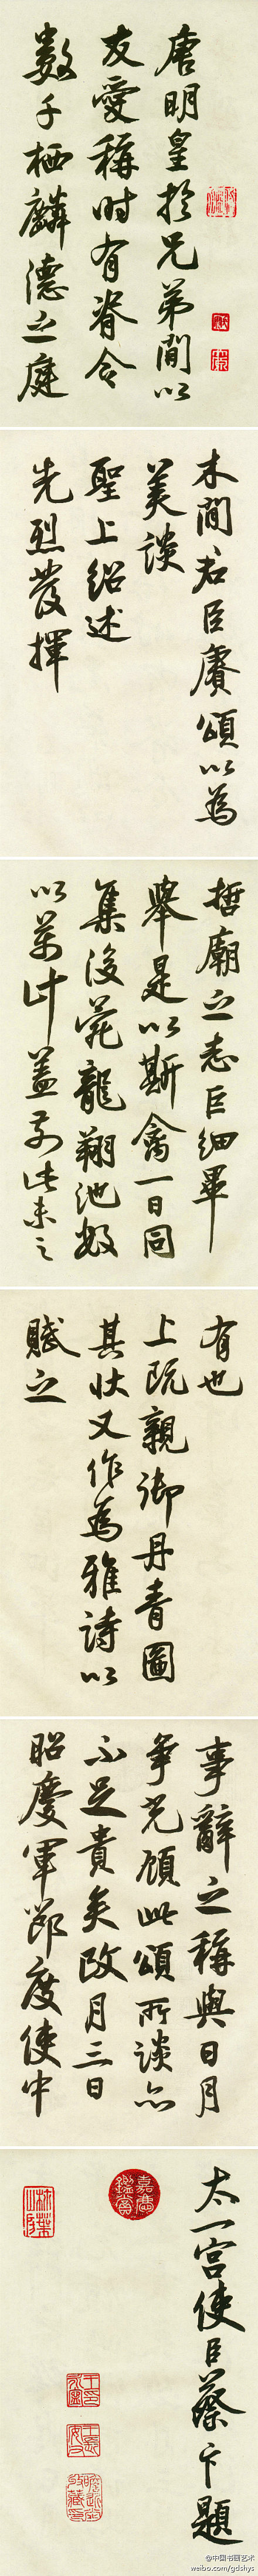 唐明皇於兄弟間以
友愛稱时有脊令
數千栖麟德之庭
木間君臣賡頌以為
美談
聖上紹述
先烈發揮
哲廟之志巨細畢
舉是以斯禽一日同
集後苑龍翔池數
以萬計蓋前此未之
有也
上既親御丹青圖
其狀又作為雅詩以
賦之
事辭之稱與日月
爭光顧此頌所談亦
不足貴矣政月三日
昭慶軍節度使中
太一宮使臣蔡卞題
嘉慶鑑賞
@中国书画艺术
weibo.com/gdshys